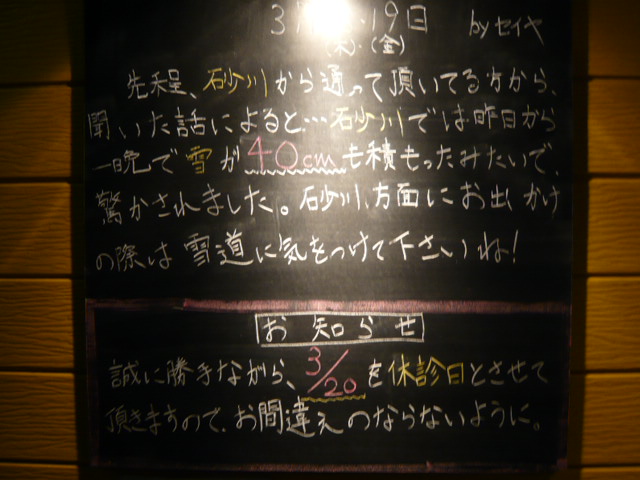 3月 19日 byセイヤ
(木)・(金)
先程、砂川から通って頂いてる方から、
聞いた話によると…砂川では昨日から
一晩で雪が40cmも積もったみたいで、
驚かされました。砂川方面にお出かけ
の際は雪道に気をつけて下さいね!
お知らせ
誠に勝手ながら、3/20を休診日とさせて
頂きますので、お間違えのならないように。